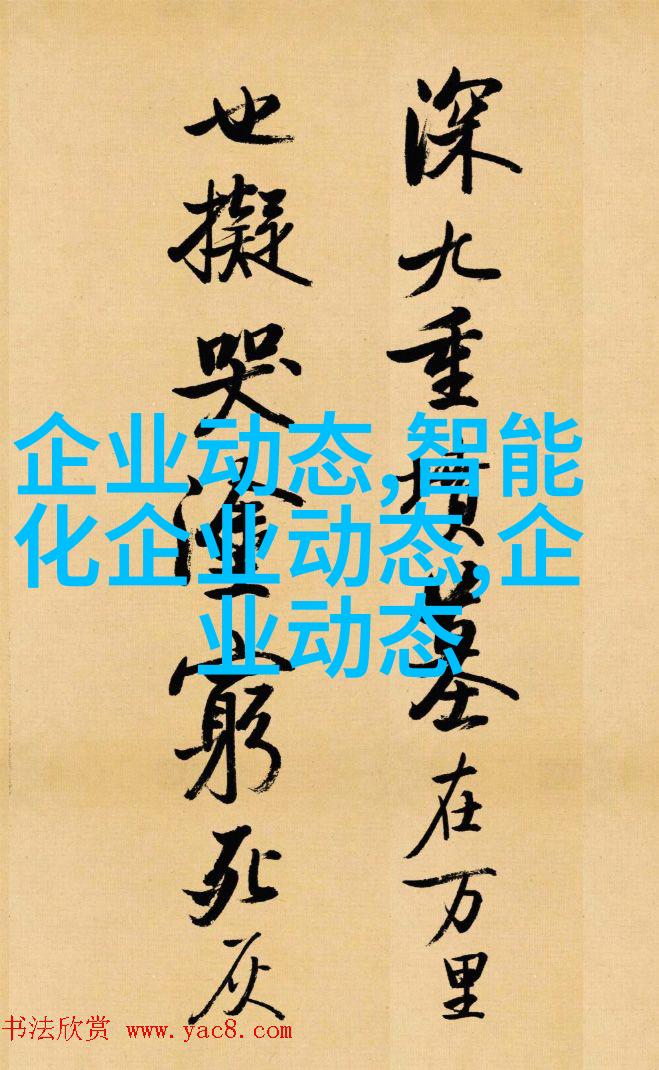 深九重墳墓在万里
也擬哭窮死灰
企业动态,智能
化企业动态,企
业动态
书法欣赏 www.yac8.com